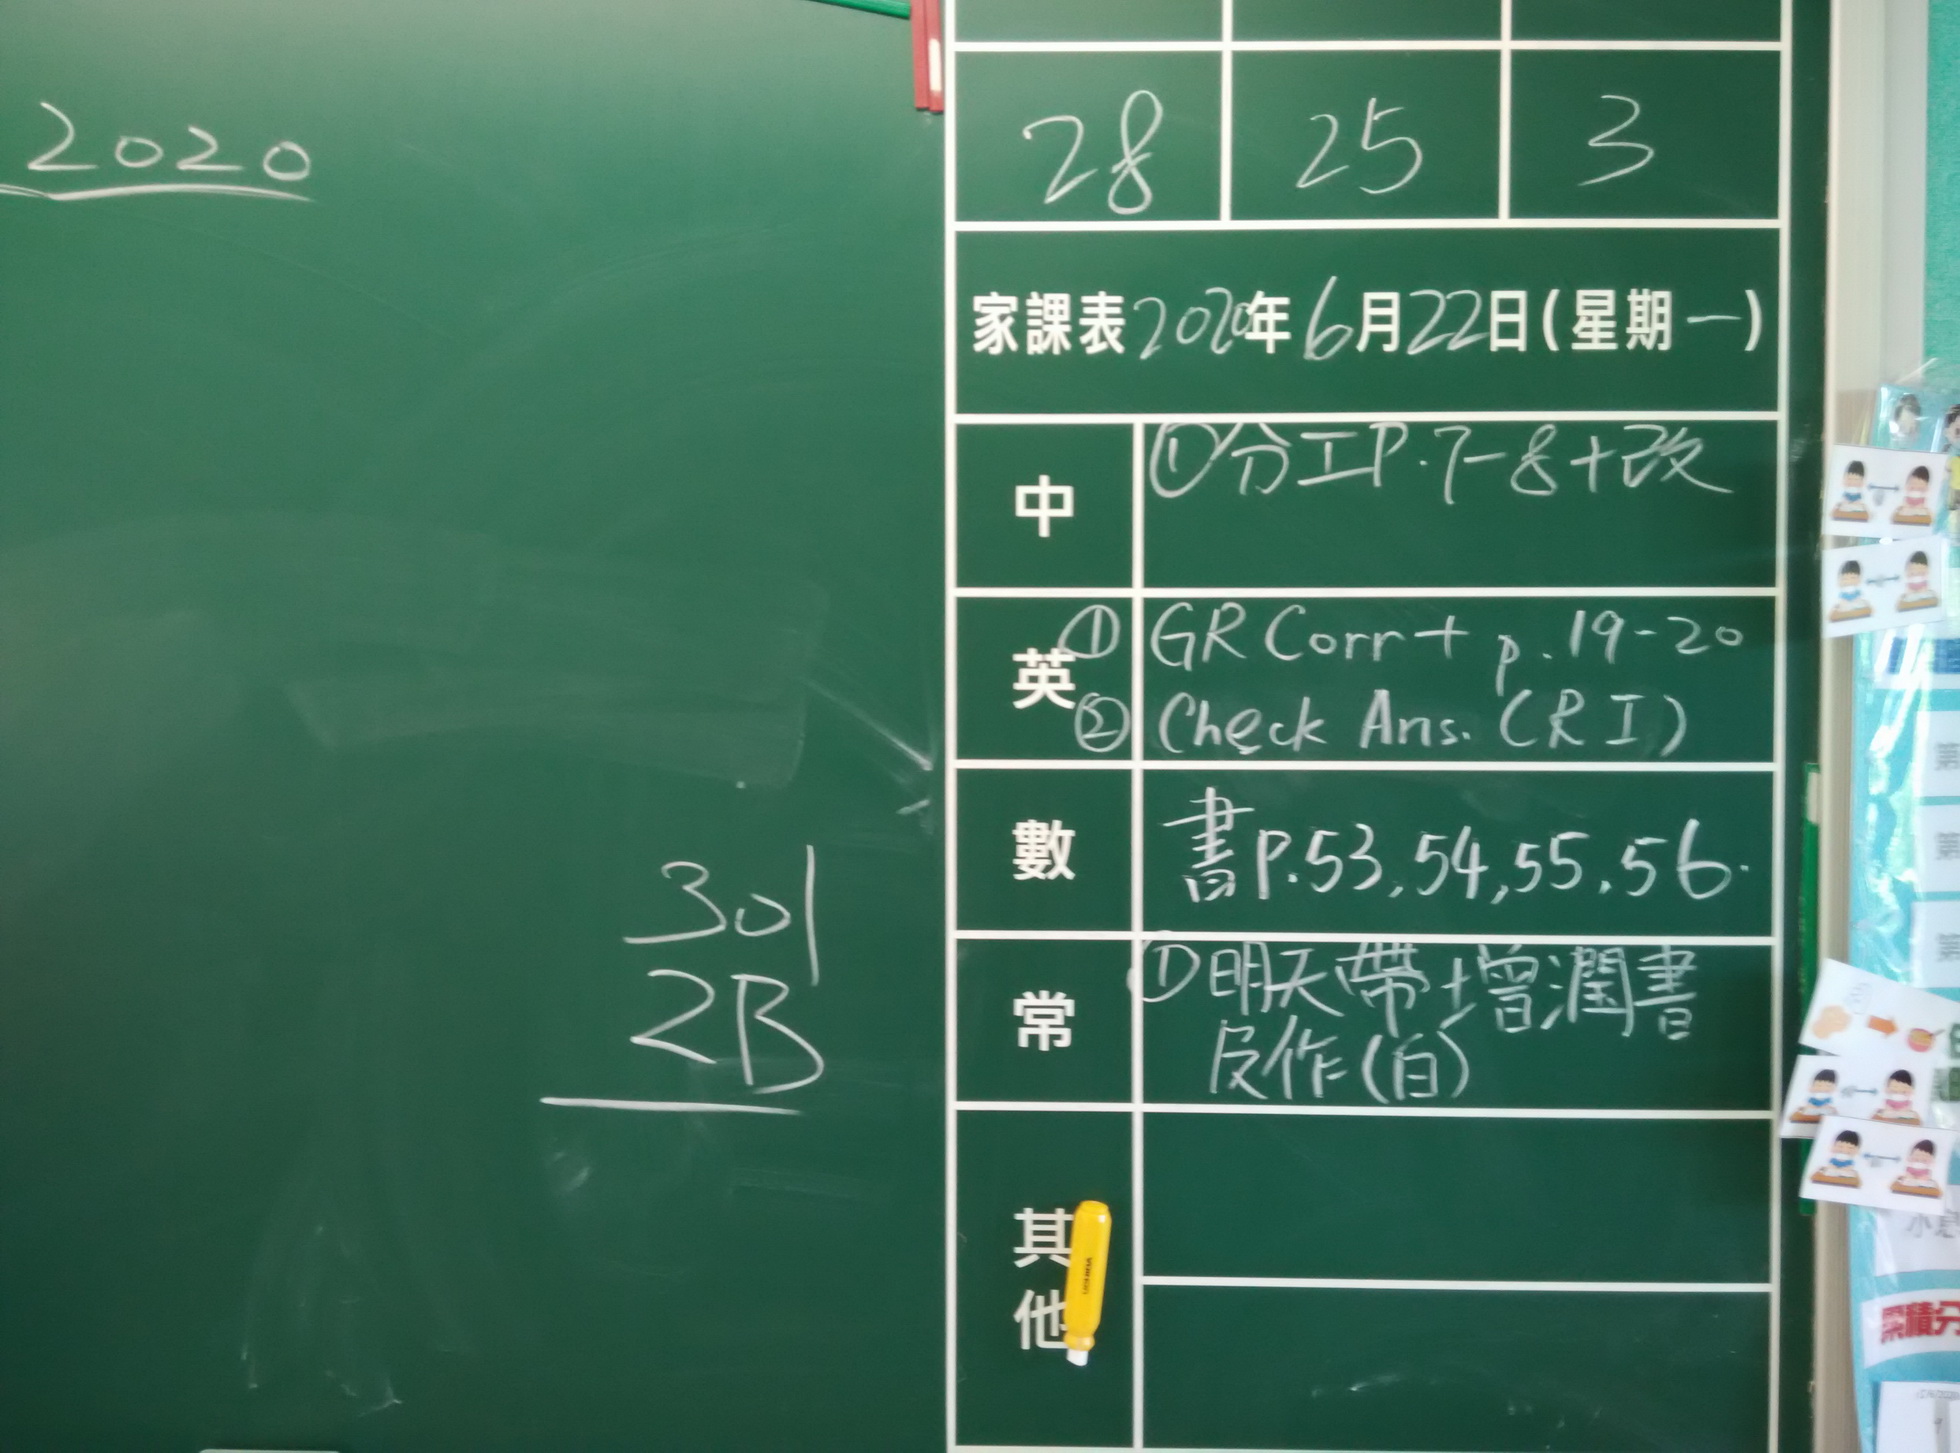 2020
28 25 3
家課表2020年6月22日(星期一)
中
①分工P.7-8+改
英
① GR Corr + p.19-20
② Check Ans. (RI)
數
書P.53,54,55,56.
常
①明天帶+增潤書
反作(白)
301
2B
其
他
第
第
第
累積分